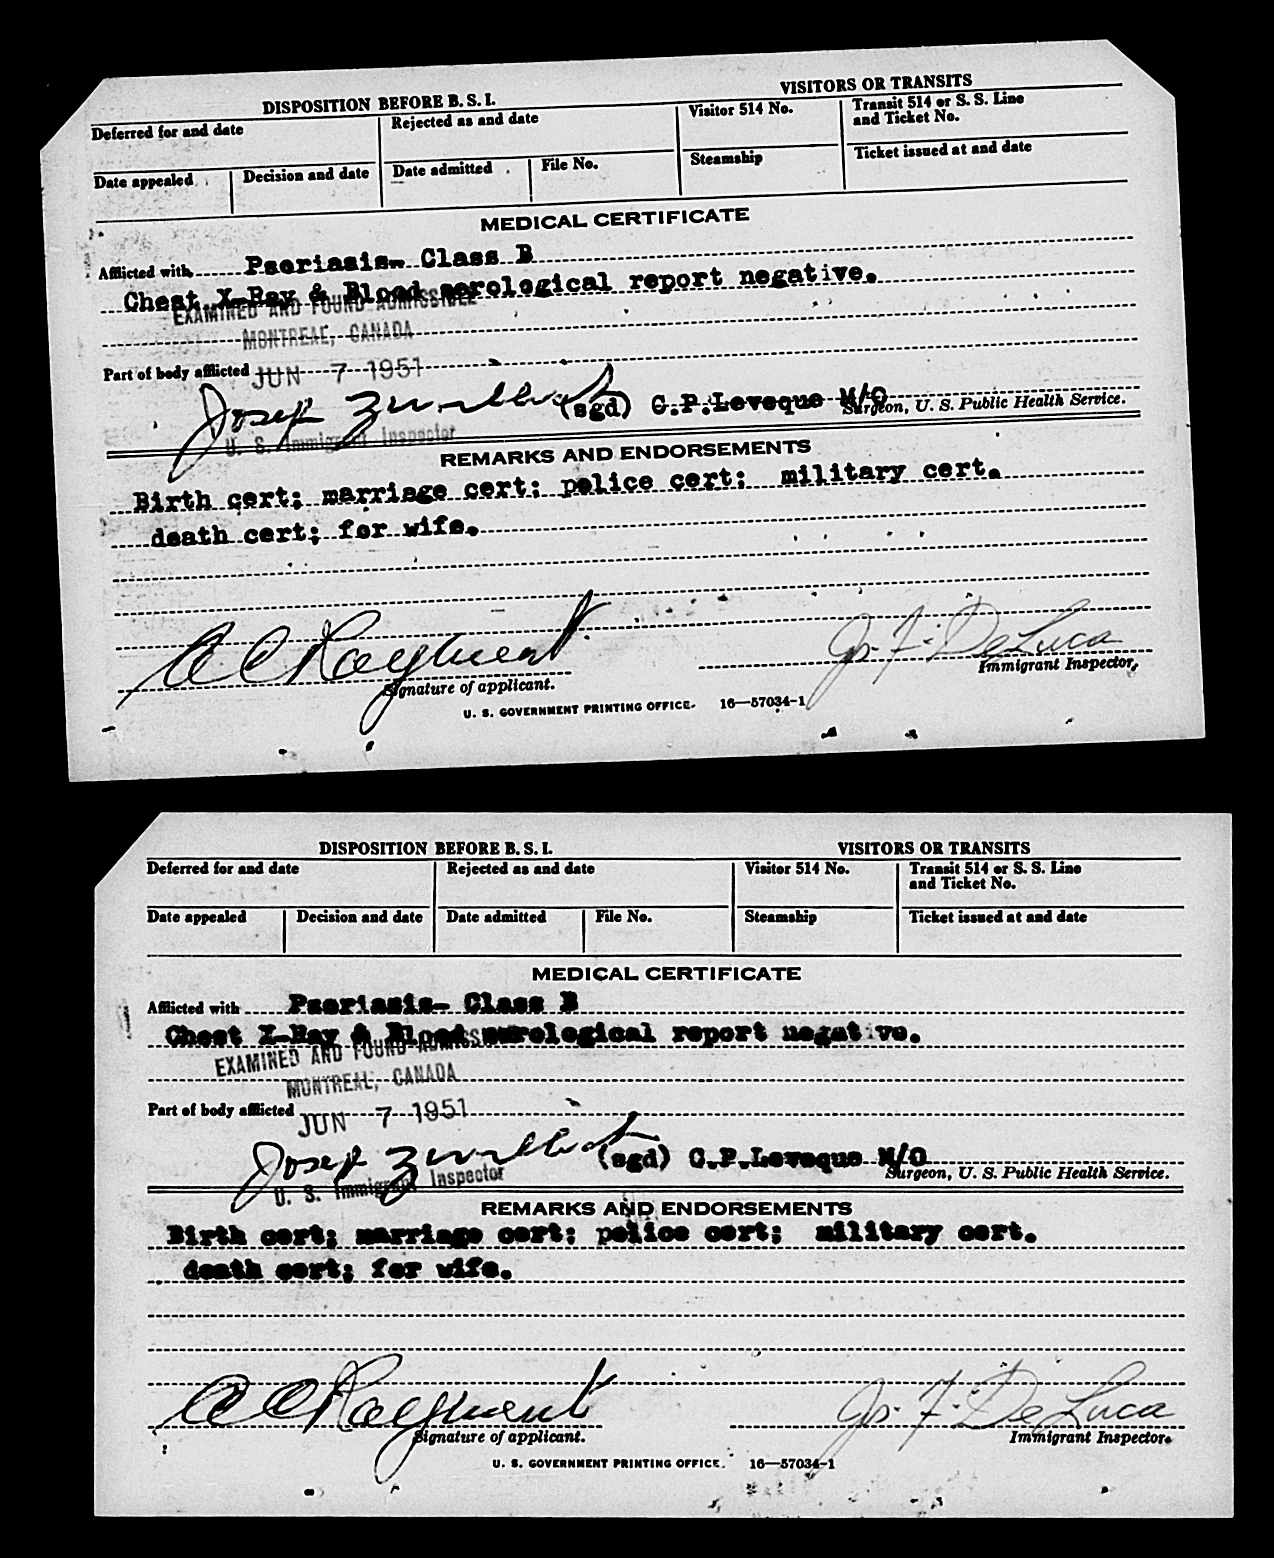 DISPOSITION BEFORE B. S. I. VISITORS OR TRANSITS
Deferred for and date Rejected as and date Visitor 514 No. Transit 514 or S. S. Line
and Ticket No.
Date appealed Decision and date Date admitted File No. Steamship Ticket issued at and date
MEDICAL CERTIFICATE
Afflicted with Psoriasis- Class B
Chest X-Ray & Blood serological report negative.
EXAMINED AND FOUND ADMISSIBLE
MONTREAL, CANADA
Part of body afflicted JUN 7 1951
Josep (sgd) G.P.Leveque M/O
Surgeon, U. S. Public Health Service.
U. S. Immigrant Inspector
REMARKS AND ENDORSEMENTS
Birth cert; marriage cert; police cert; military cert.
death cert; for wife.
A C Rayment Js. F. DeLuca
Signature of applicant. Immigrant Inspector.
U. S. GOVERNMENT PRINTING OFFICE. 16—57034-1
DISPOSITION BEFORE B. S. I. VISITORS OR TRANSITS
Deferred for and date Rejected as and date Visitor 514 No. Transit 514 or S. S. Line
and Ticket No.
Date appealed Decision and date Date admitted File No. Steamship Ticket issued at and date
MEDICAL CERTIFICATE
Afflicted with Psoriasis- Class B
Chest X-Ray & Blood serological report negative.
EXAMINED AND FOUND ADMISS
MONTREAL, CANADA
Part of body afflicted JUN 7 1951
Josep (sgd) G.P.Leveque M/O
Surgeon, U. S. Public Health Service.
U. S. Immigrant Inspector
REMARKS AND ENDORSEMENTS
Birth cert; marriage cert; police cert; military cert.
death cert; for wife.
A C Rayment Js. F. DeLuca
Signature of applicant. Immigrant Inspector.
U. S. GOVERNMENT PRINTING OFFICE. 16—57034-1